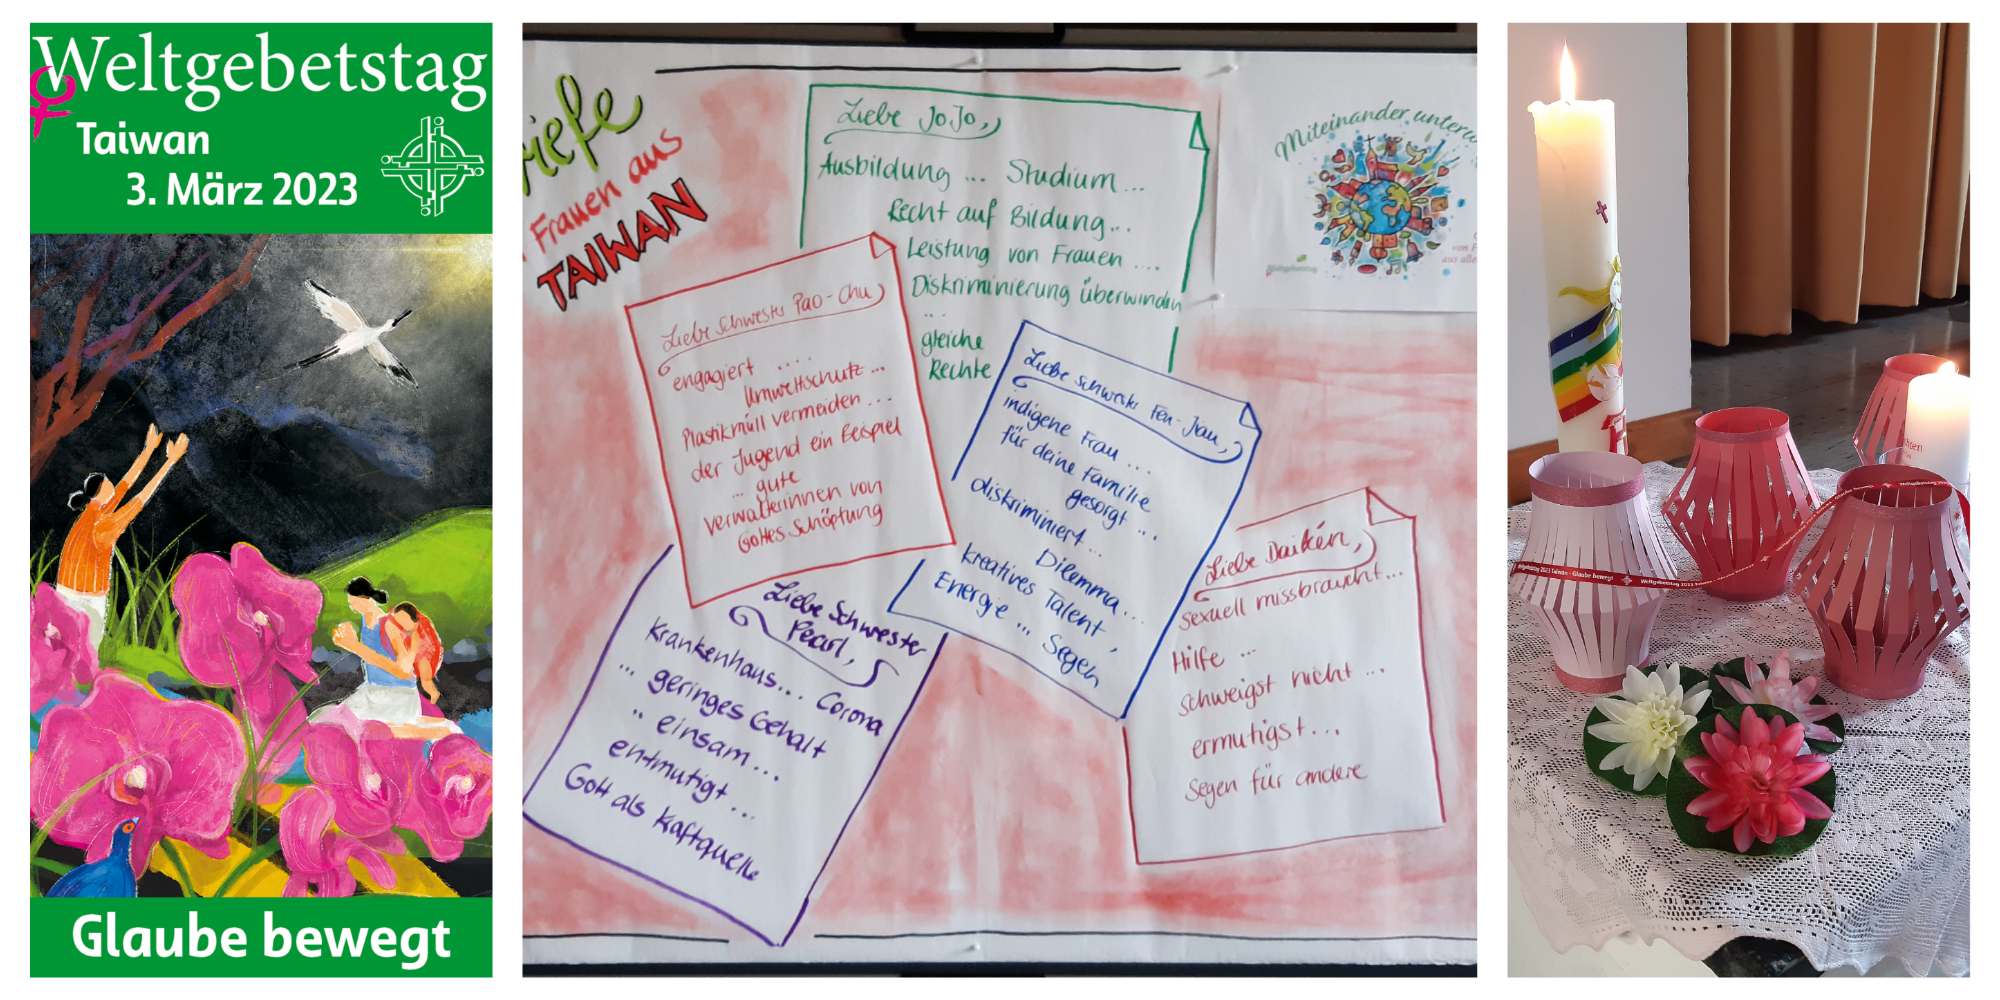 Weltgebetstag
Taiwan
3. März 2023
Glaube bewegt
Frauen aus
TAIWAN
Liebe JoJo,
Ausbildung ... Studium ...
Recht auf Bildung...
Leistung von Frauen ...
Diskriminierung überwinden
...
gleiche
Rechte
Miteinander
Weltgebetstag
Liebe Schwester Pao-Chu
engagiert ....
Umweltschutz ...
Plastikmüll vermeiden ...
der Jugend ein Beispiel
... gute
Verwalterinnen von
Gottes Schöpfung
Liebe Schwester Fen-Jau,
indigene Frau ...
für deine Familie
gesorgt ...
diskriminiert ...
Dilemma...
kreatives Talent,
Energie ... Segen
Liebe Schwester
Pearl,
Krankenhaus... Corona
... geringes Gehalt
.. einsam ...
entmutigt ...
Gott als Kaftquelle
Liebe Daikén,
sexuell missbraucht...
Hilfe ...
schweigst nicht ...
ermutigst...
Segen für andere
Weltgebetstag 2023 Taiwan - Glaube bewegt
Weltgebetstag 2023